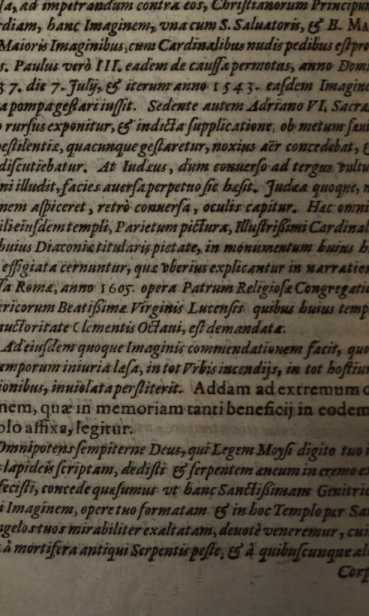 sa, ad impetrandam contra eos, Christianorum Principum
rdiam, hanc Imaginem, vna cum S. Saluatoris, & B. Ma
Maioris Imaginibus, cum Cardinalibus nudis pedibus est pro
s. Paulus verò III. eadem de caussa permotus, anno Dom
37. die 7. Julij, & iterum anno 1543. easdem Imagine
a pompa gestari iussit. Sedente autem Adriano VI, Sacra
rursus exponitur, & indicta supplicatione, ob metum
pestilentiæ, quacunque gestaretur, noxius aër concedebat, &
discutiebatur. At Iudæus, dum conuerso ad tergus vultu
ni illudit, facies auersa perpetno sic hæsit. Judæa quoque,
nem aspiceret, retrò conuersa, oculis capitur. Hæc omni
ilie iusdem templi, Parietum pictura, Illustrissimi Cardinal
huius Diaconiæ titularis pietate, in monumentum huius
effigiata cernuntur, quæ vberius explicantur in narration
sa Romæ, anno 1605. opera Patrum Religiosæ Congregati
ericorum Beatissimæ Virginis Lucenses quibus huius temp
auctoritate Clementis Octaui, est demandata.
Ad eiusdem quoque Imaginis commendationem facit, quo
emporum iniuria læsa, in tot Vrbis incendijs, in tot hostium
ionibus, inuiolata perstiterit. Addam ad extremum o
nem, quæ in memoriam tanti beneficij in eodem
olo affixa, legitur.
Omnipotens sempiterne Deus, qui Legem Moysi digito tuo
s lapideis scriptam, dedisti & serpentem æneum in eremo ex
fecisti, concede quæsumus vt hanc Sanctissimam Genitric
i Imaginem, opere tuo formatam & in hoc Templo per San
ngelos tuos mirabiliter exaltatam, deuotè veneremur, cui
à mortifera antiqui Serpentis peste, & à quibuscunque al
Corp